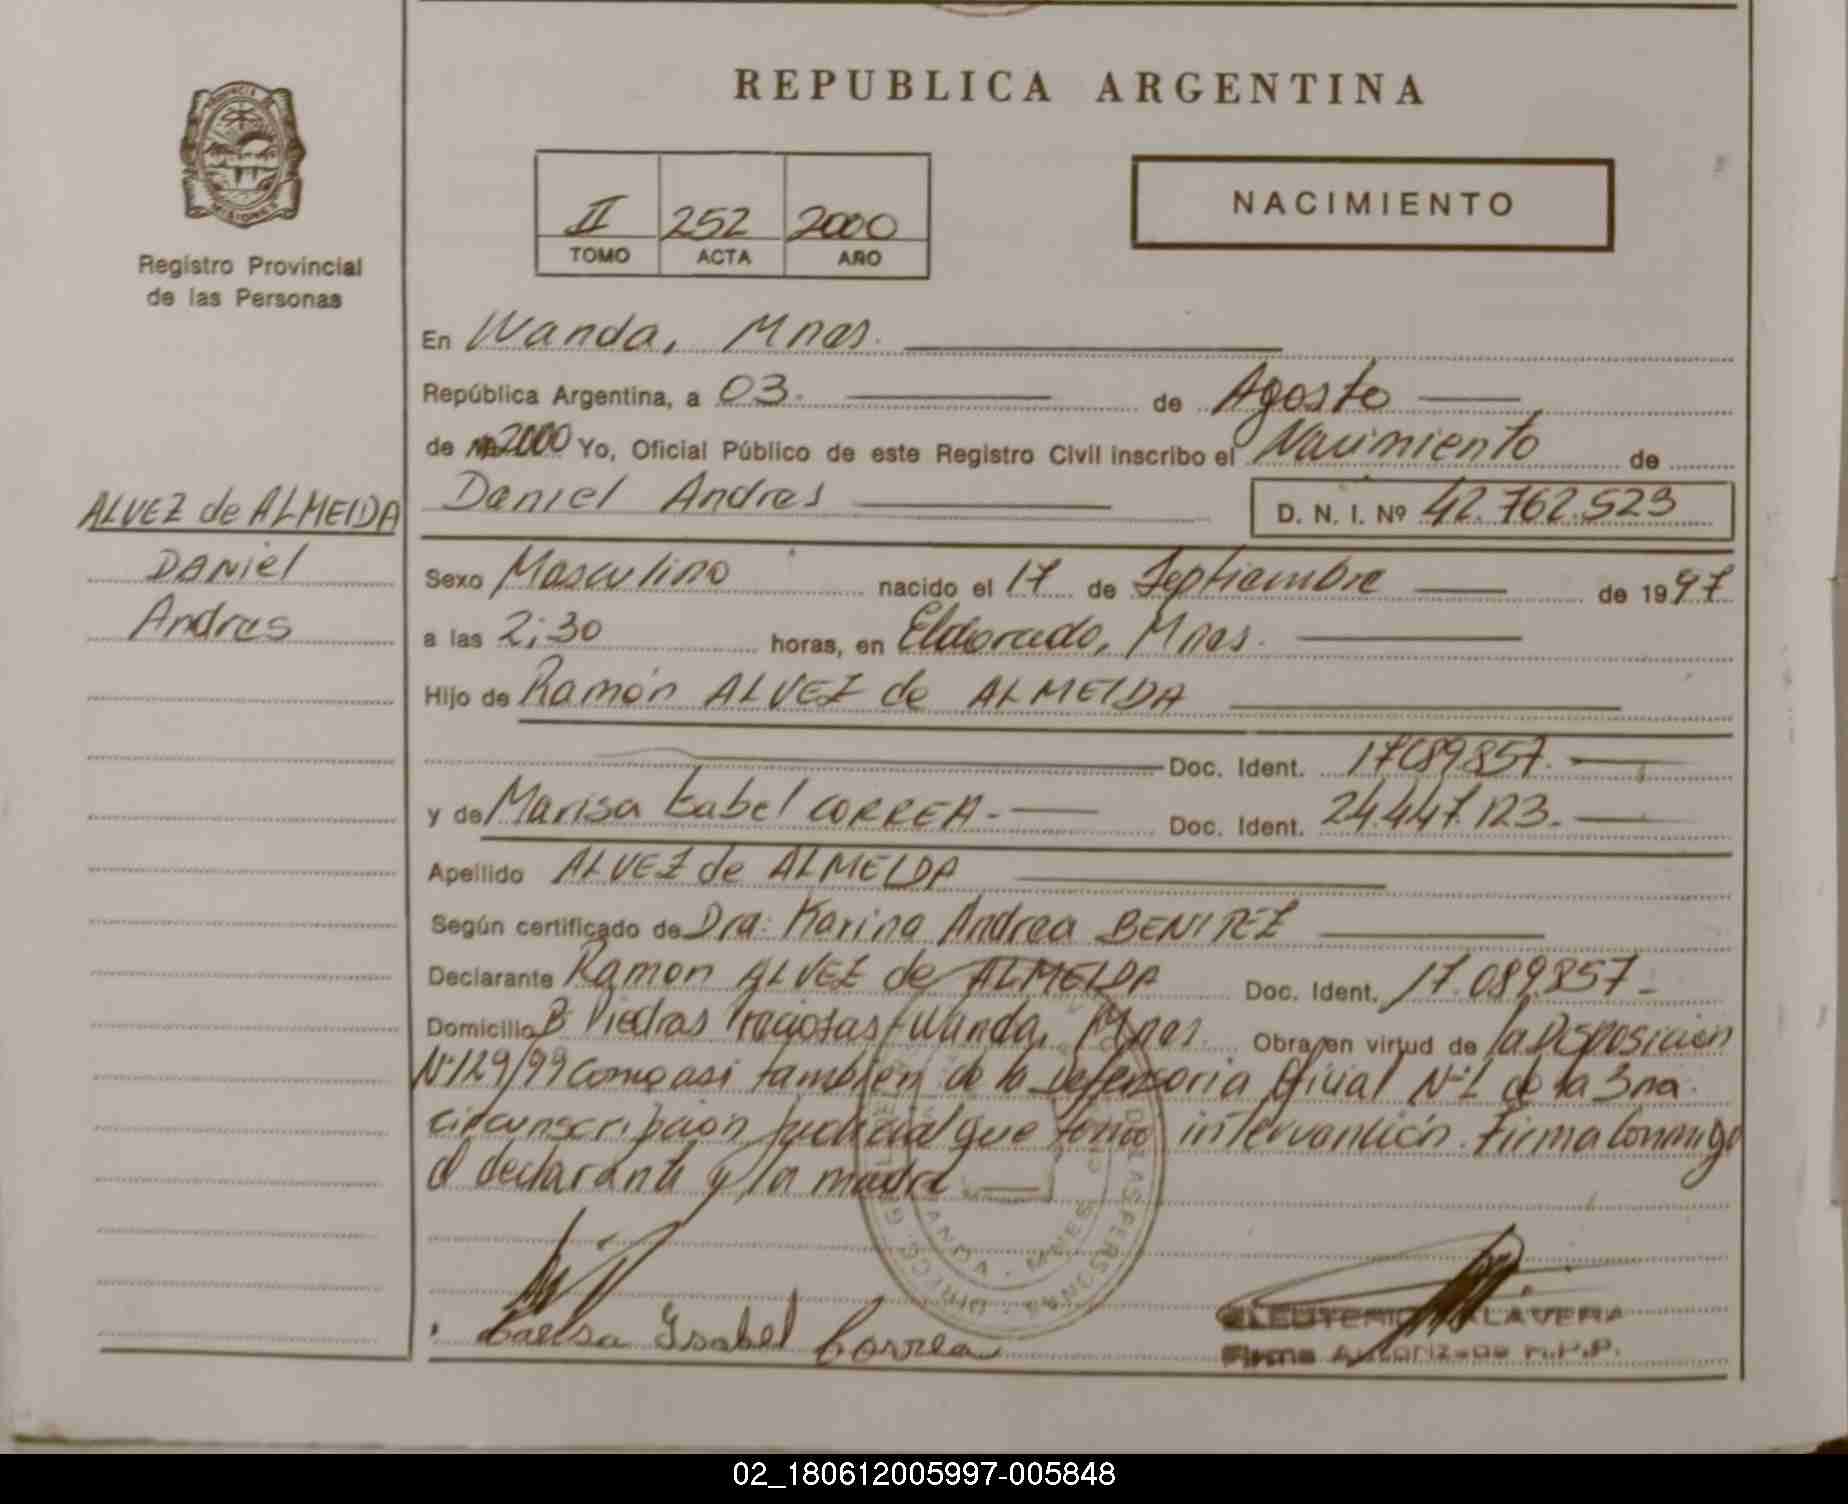 REPUBLICA ARGENTINA
PROVINCIA
MISIONES
Registro Provincial
de las Personas
II 252 2000
TOMO ACTA AÑO
NACIMIENTO
En Wanda, Mnes.
República Argentina, a 03. de Agosto
de 2000 Yo, Oficial Público de este Registro Civil inscribo el Nacimiento de
Daniel Andres D. N. I. Nº 42.762.523
ALVEZ de ALMEIDA
DANIEL
Andres
Sexo Masculino nacido el 17 de Septiembre de 1997
a las 2;30 horas, en Eldorado, Mnes.
Hijo de Ramón ALVEZ de ALMEIDA
Doc. Ident. 17089.857.
y de Marisa Isabel CORREA- Doc. Ident. 24.447.123.
Apellido ALVEZ de ALMEIDA
Según certificado de Dra: Karina Andrea BENITEZ
Declarante Ramon ALVEZ de ALMEIDA Doc. Ident. 17.089.857-
Domicilio Bº Piedras Preciosas, Wanda, Mnes. Obra en virtud de la Disposicion
Nº129/99 Como asi tambien de la Defensoria Oficial Nº1 de la 3ra
circunscripcion judicial que tomó intervención. Firma conmigo
el declarante y la madre
Isabel Correa
DE LAS PERSONAS
WANDA - MNES
ELEUTERIO TALAVERA
Firma Autorizada R.P.P.
02_180612005997-005848